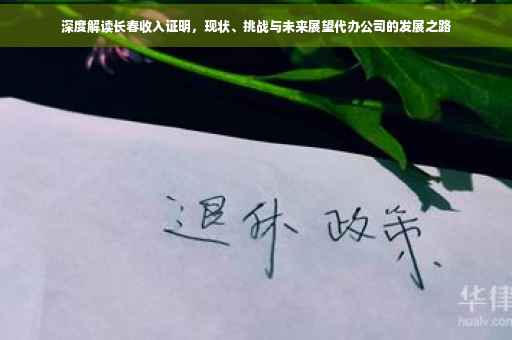 深度解读长春收入证明，现状、挑战与未来展望代办公司的发展之路
退休 政策
华律
hualv.com